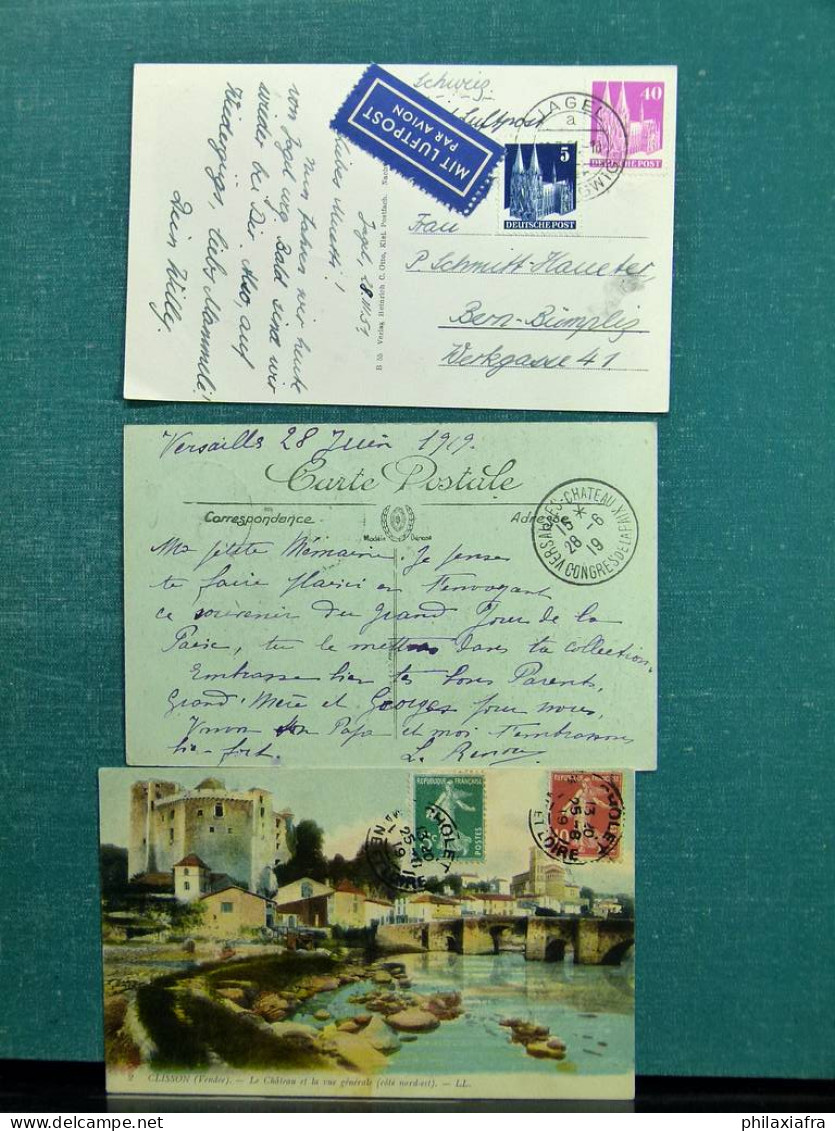 Schweiz
Luftpost
MIT LUFTPOST
PAR AVION
JAGEL
a
40
DEUTSCHE POST
5
DEUTSCHE POST
Jagel, 28.
Liebes Mutti!
Nun fahren wir heute
von Jagel weg. Bald sind wir
wieder bei Dir. Also, auf
Wiedersehn, liebs Mammeli!
Dein Willy.
B 55 Verlag Heinrich C. Otto, Kiel, Postfach.
Frau
P. Schmitt-Haueter
Bern-Bümpliz
Werkgasse 41
Versailles 28 Juin 1919.
Carte Postale
Correspondance
Adresse
Modèle Déposé
VERSAILLES-CHATEAU XIV
15 *
28 -6
19
CONGRES DE LA PAIX
Ma petite Je pense
te faire plaisir en t'envoyant
ce souvenir du Grand Jour de la
Paix, tu le mettras dans ta collection.
Embrasse bien tes bons Parents,
Grand'Mère et Georges pour nous.
Ton Papa et moi t'embrassons
bien fort.
REPUBLIQUE FRANÇAISE
POSTES
REPUBLIQUE FRANÇAISE
CHOLET
25-11
CHOLET
13 20
25-8
ET LOIRE
2 CLISSON (Vendée). — Le Château et la vue générale (côté nord-est). — LL.
philaxiafra @ delcampe.net